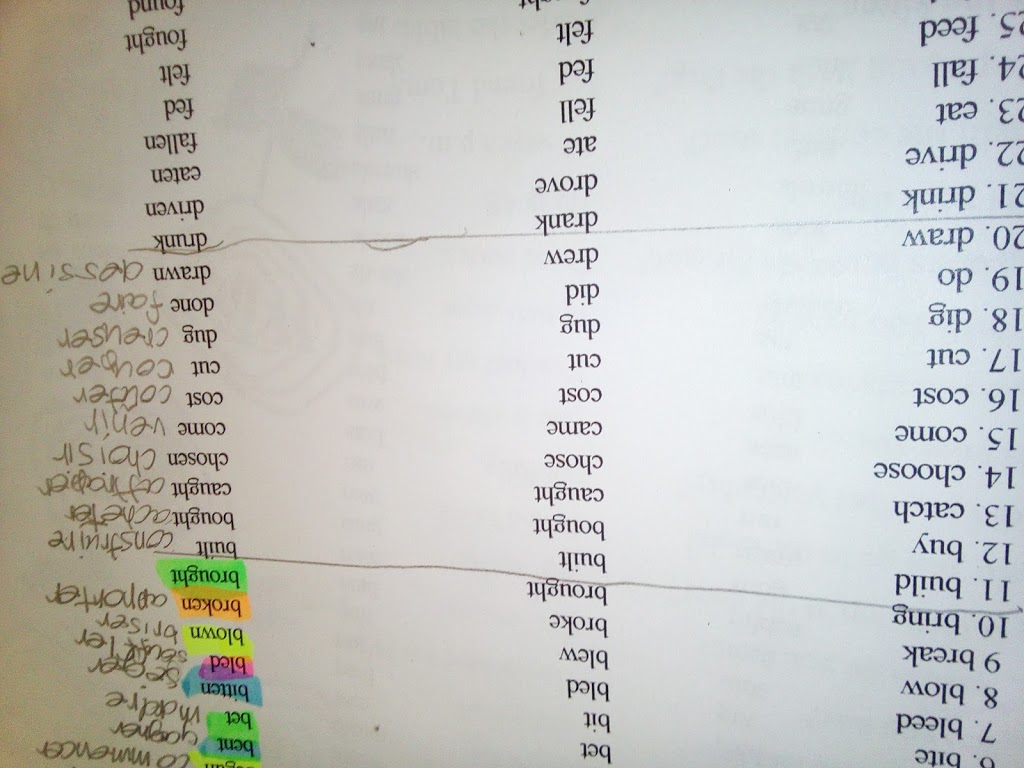 bent commencer
bet bet gagner
6. bite bit bitten mordre
7. bleed bled bled
8. blow blew blown
9 break broke broken briser
10. bring brought brought apporter
11. build built built construire
12. buy bought bought acheter
13. catch caught caught attraper
14. choose chose chosen choisir
15. come came come venir
16. cost cost cost coûter
17. cut cut cut couper
18. dig dug dug creuser
19. do did done faire
20. draw drew drawn dessine
21. drink drank drunk
22. drive drove driven
23. eat ate eaten
24. fall fell fallen
25. feed fed fed
felt felt
fought fought
found